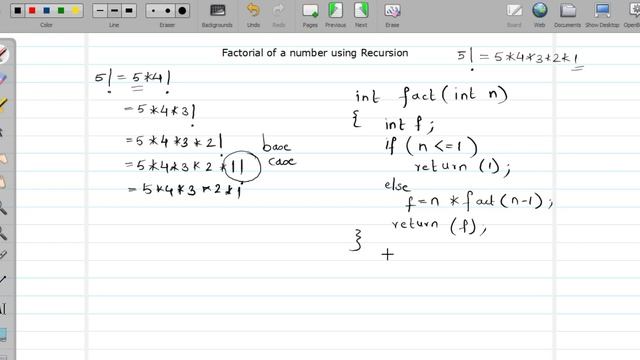 Color
Line
Eraser
Backgrounds
Undo
Redo
Pages
Previous
Next
Erase
Show Desktop
OpenBoard
Factorial of a number using Recursion
5! = 5*4*3*2*1
5! = 5*4!
= 5*4*3!
= 5*4*3*2!
= 5*4*3*2*1!
= 5*4*3*2*1
base
case
int fact(int n)
{ int f;
if (n <=1)
return (1);
else
f=n * fact(n-1);
return (f);
}